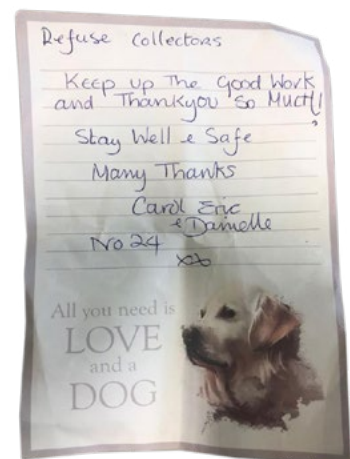 Refuse Collectors
Keep up The Good Work
and Thankyou So Much!!
Stay Well & Safe
Many Thanks
Carol Eric
& Danielle
No 24
xx
All you need is
LOVE
and a
DOG